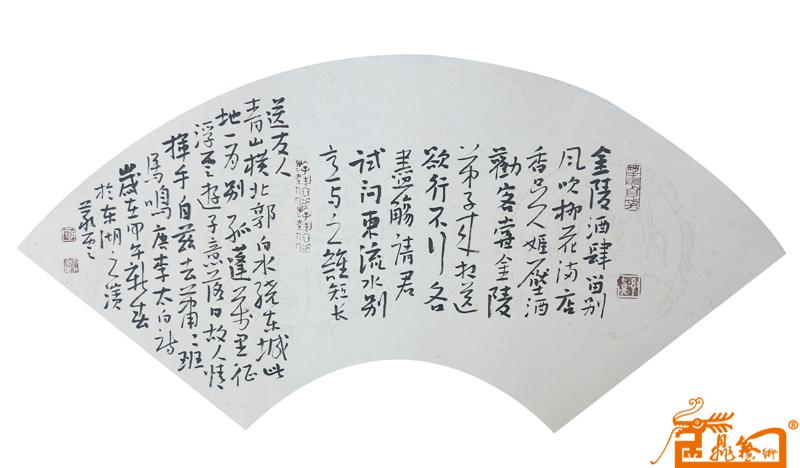 金陵酒肆留别
风吹柳花满店
香吴姬壓酒
勸客嘗金陵
弟子来相送
欲行不行各
盡觴請君
试问東流水别
意与之誰短长
送友人
青山横北郭白水绕东城此
地一为别孤蓬万里征
浮云游子意落日故人情
揮手自兹去萧々班
马鸣唐李太白诗
岁在甲午新春
於东湖之濱